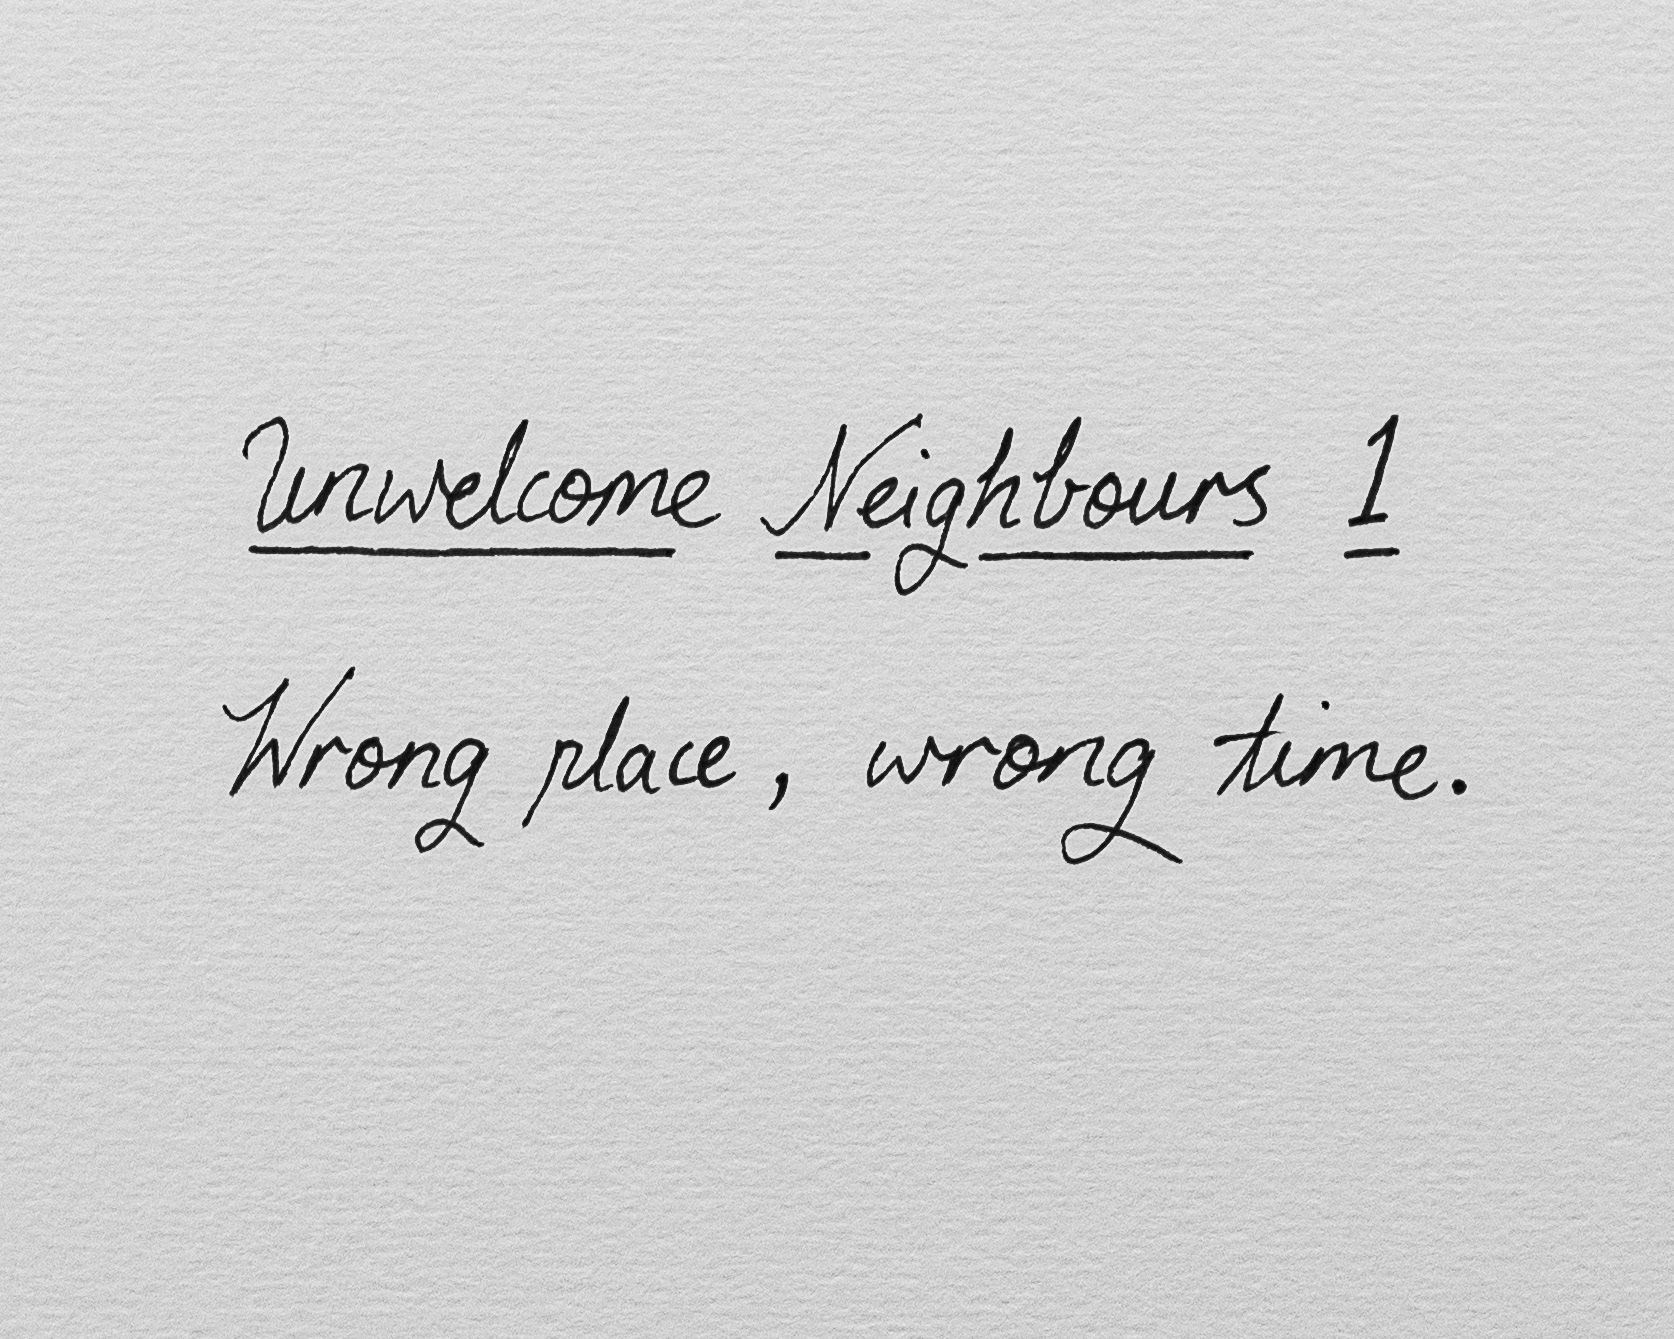 Unwelcome Neighbours 1
Wrong place, wrong time.